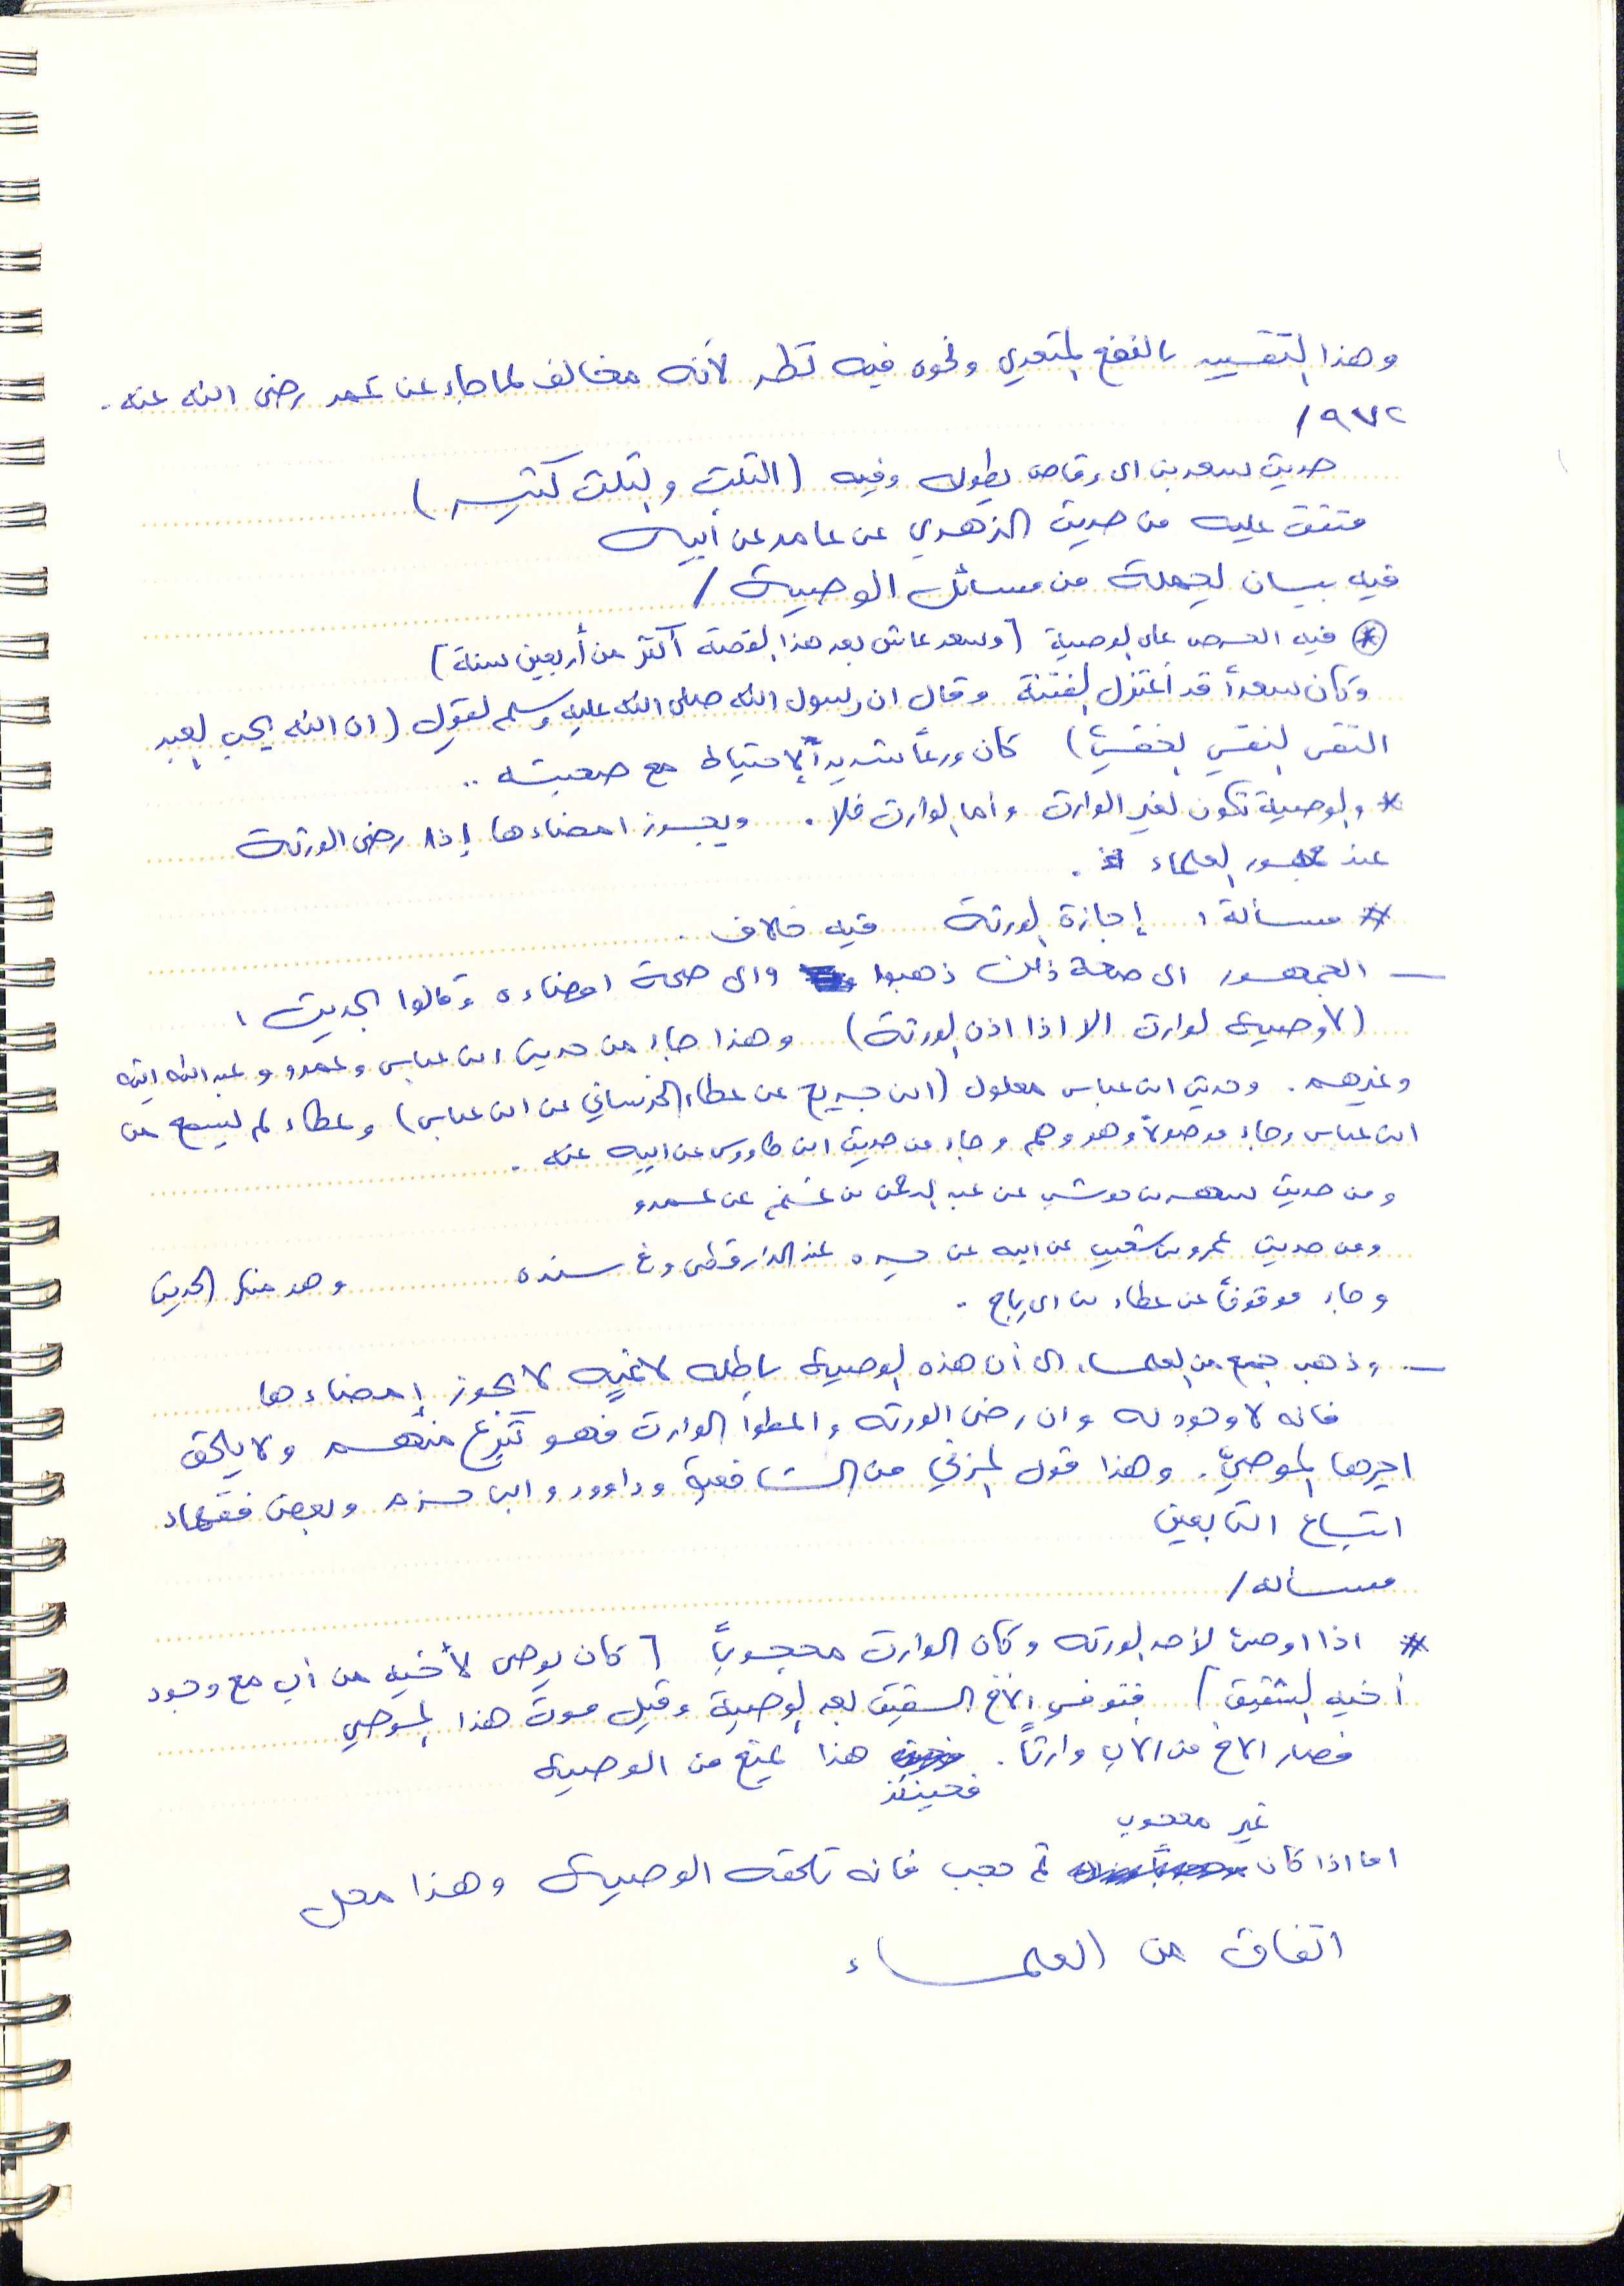 وهذا التقييد بالنفع المتعدي ونحوه فيه نظر لأنه مخالف لما جاء عن عمر رضى الله عنه .
٩٧٢/
حديث سعد بن ابى وقاص بطوله وفيه (الثلث والثلث كثير)
متفق عليه من حديث الزهري عن عامر عن أبيه
فيه بيان لجملة من مسائل الوصية /
* فيه الحرص على الوصية [وسعد عاش بعد هذا القصة أكثر من أربعين سنة]
وكان سعداً قد اعتزل الفتنة وقال ان رسول الله صلى الله عليه وسلم يقول (ان الله يحب العبد
التقى النقي الخفي) كان ورعاً شديد الاحتياط مع صحبته ..
* والوصية تكون لغير الوارث واما الوارث فلا . ويجوز امضاءها إذا رضى الورثة
عند جمهور العلماء .
* مسألة : إجازة الورثة فيه خلاف .
— الجمهور الى صحة ذلك ذهبوا والى صحة امضاءه وقالوا الحديث :
(لا وصية لوارث الا اذا اذن الورثة) وهذا جاء من حديث ابن عباس وعمرو وعبدالله ابنه
وغيرهم . وحديث ابن عباس معلول (ابن جريج عن عطاء الخرساني عن ابن عباس) وعطاء لم يسمع من
ابن عباس وجاء موصولاً وهو وهم وجاء من حديث ابن طاووس عن ابيه عنه .
ومن حديث شهر بن حوشب عن عبد الرحمن بن غنم عن عمرو
ومن حديث عمرو بن شعيب عن ابيه عن جده عند الدارقطنى وفى سنده وهو منكر الحديث
وجاء موقوفاً عن عطاء بن ابى رباح .
— وذهب جمع من العلماء الى أن هذه الوصية باطله لاغيه لا يجوز إمضاءها
فانه لا وجود له وان رضى الورثه واعطوا الوارث فهو تبرع منهم ولا يلحق
اجرها الموصي . وهذا قول المزني من الشافعية وداوود وابن حزم وبعض فقهاء
اتباع التابعين
مسأله /
* اذا اوصى لأحد الورثه وكان الوارث محجوباً [كان يوصى لأخيه من أب مع وجود
أخيه الشقيق] فتوفى الأخ الشقيق بعد الوصية وقبل موت هذا الموصي
فصار الاخ من الاب وارثاً . فحينئذ هذا يمنع من الوصية
اما اذا كان غير محجوب ثم حجب فانه تلحقه الوصية وهذا محل
اتفاق من العلماء